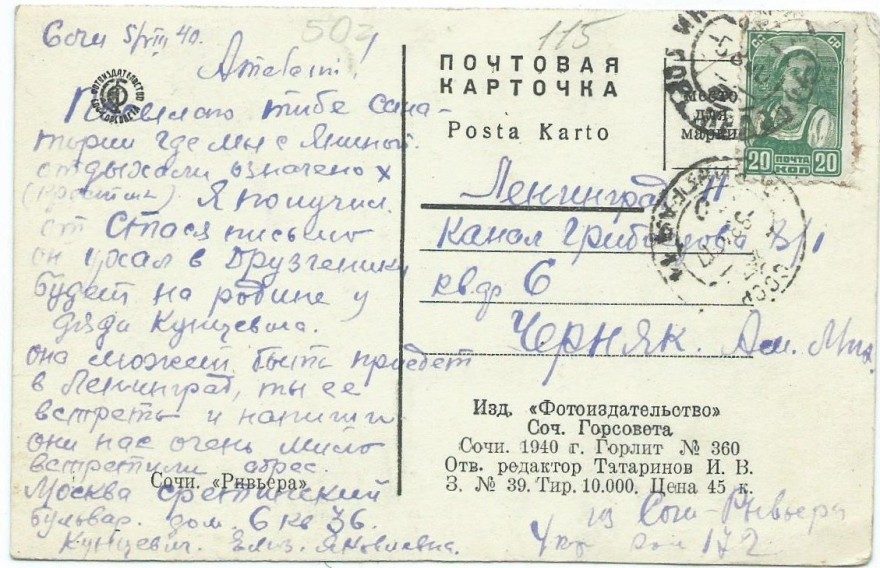 Сочи 5/VIII 40.
502
115
Посылаю тибе сана-
торий где мы с Яниной
отдыхали означено х
(крестик). Я получил
от Стася письмо
он уехал в Друзгеники
будет на родине у
дяди Кунцевича.
она может быть приедет
в Ленинград, ты ее
встреть и напиши
они нас очень мило
встретили адрес.
Москва сретинский
бульвар. дом. 6 кв 36.
Кунцевич. Елиз. Яковлевна.
Сочи. «Ривьера»
ПОЧТОВАЯ
КАРТОЧКА
Posta Karto
место
для
марки
20 ПОЧТА 20
КОП
СССР
Ленинград
Канал Грибоедова
6
Черняк.
Изд. «Фотоиздательство»
Соч. Горсовета
Сочи. 1940 г. Горлит № 360
Отв. редактор Татаринов И. В.
З. № 39. Тир. 10.000. Цена 45 к.
из Сочи-Ривьера
172